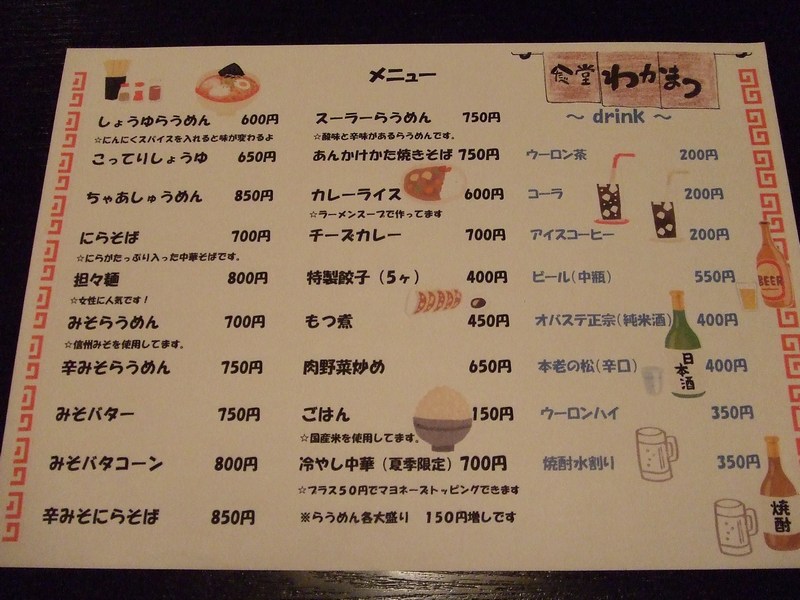 メニュー
食堂 わかまつ
しょうゆらうめん 600円
☆にんにくスパイスを入れると味が変わるよ
こってりしょうゆ 650円
ちゃあしゅうめん 850円
にらそば 700円
☆にらがたっぷり入った中華そばです。
担々麺 800円
☆女性に人気です！
みそらうめん 700円
☆信州みそを使用してます。
辛みそらうめん 750円
みそバター 750円
みそバタコーン 800円
辛みそにらそば 850円
スーラーらうめん 750円
☆酸味と辛味があるらうめんです。
あんかけかた焼きそば 750円
カレーライス 600円
☆ラーメンスープで作ってます
チーズカレー 700円
特製餃子（5ヶ） 400円
もつ煮 450円
肉野菜炒め 650円
ごはん 150円
☆国産米を使用してます。
冷やし中華（夏季限定） 700円
☆プラス５０円でマヨネーズトッピングできます
※らうめん各大盛り １５０円増しです
～ drink ～
ウーロン茶 200円
コーラ 200円
アイスコーヒー 200円
ビール（中瓶） 550円
オバステ正宗（純米酒） 400円
本老の松（辛口） 400円
ウーロンハイ 350円
焼酎水割り 350円
BEER
日本酒
焼酎